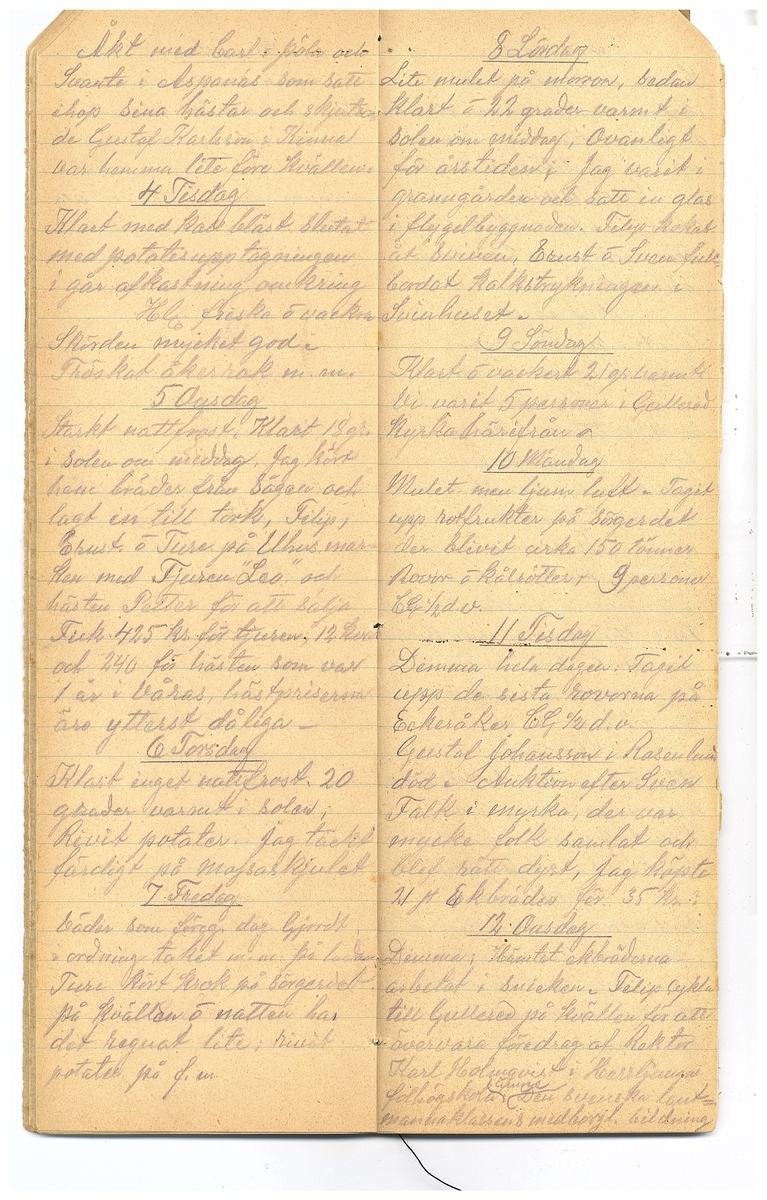 Åkt med Carl i och
Svante i Aspanäs som satt
ihop sina hästar och skjutsa
de Gustaf Karlsson i Kinna
var hemma lite före kvällen.
4 Tisdag
Klart med kall blåst slutat
med potatisupptagningen
i går afkastning omkring
Hl. friska ö vackra
Skörden mycket god.
Tröskat åkerrak m.m.
5 Onsdag
Starkt nattfrost. Klart 18 gr.
i solen om middag. Jag kört
hem bräder från Sågen och
lagt in till tork, Filip,
Ernst ö Ture på Ulhus mar-
ken med Tjuren "Leo" och
hästen Petter för att sälja
Fick 425 kr för tjuren. 12 kvar
och 240 för hästen som var
1 år i våras, hästpriserna
äro ytterst dåliga
6 Torsdag
Klart inget nattfrost. 20
grader varmt i solen;
Rivit potater. Jag täckt
färdigt på mossaskjulet
7 Fredag
Väder som föreg. dag. Gjordt
i ordning taket m.m. på
Ture kört krok på Sörgerdet
på kvällen ö natten har
det regnat lite; rivit
potater på f.m
8 Lördag
Lite mulet på morron, sedan
klart ö 22 grader varmt i
solen om middag, Ovanligt
för årstiden; Jag varit i
granngården och satt in glas
i flygelbyggnaden. Filip kokat
åt svinen, Ernst ö Sven full-
bordat kalkstrykningen i
Svinhuset.
9 Söndag
Klart ö vackert 21 gr. varmt
Vi varit 5 personar i Gullered
Kyrka härifrån
10 Måndag
Mulet men ljum luft. Tagit
upp rotfrukter på Sörgerdet
der blivit cirka 150 tönner
Rovor ö kålrötter. 9 personer
CG ½ d.v.
11 Tisdag
Dimma hela dagen. Tagit
upp de sista rovorna på
Eckeråker CG ½ d.v.
Gustaf Johansson i Rosenlund
död. Auktion efter Sven
Falk i myrka, der var
mycke folk samlat och
blef rätt dyrt, jag köpte
21 st Ekbräder för 35 kr.
12 Onsdag
Dimma; Hämtat ekbräderna
arbetat i snickeri. Filip cyklat
till Gullered på kvällen för att
övervara föredrag af Rektor
Karl Holmqvist i Herrljunga
folhögskola (ämne Den svenska lant-
mannaklassens medborgl. bildning